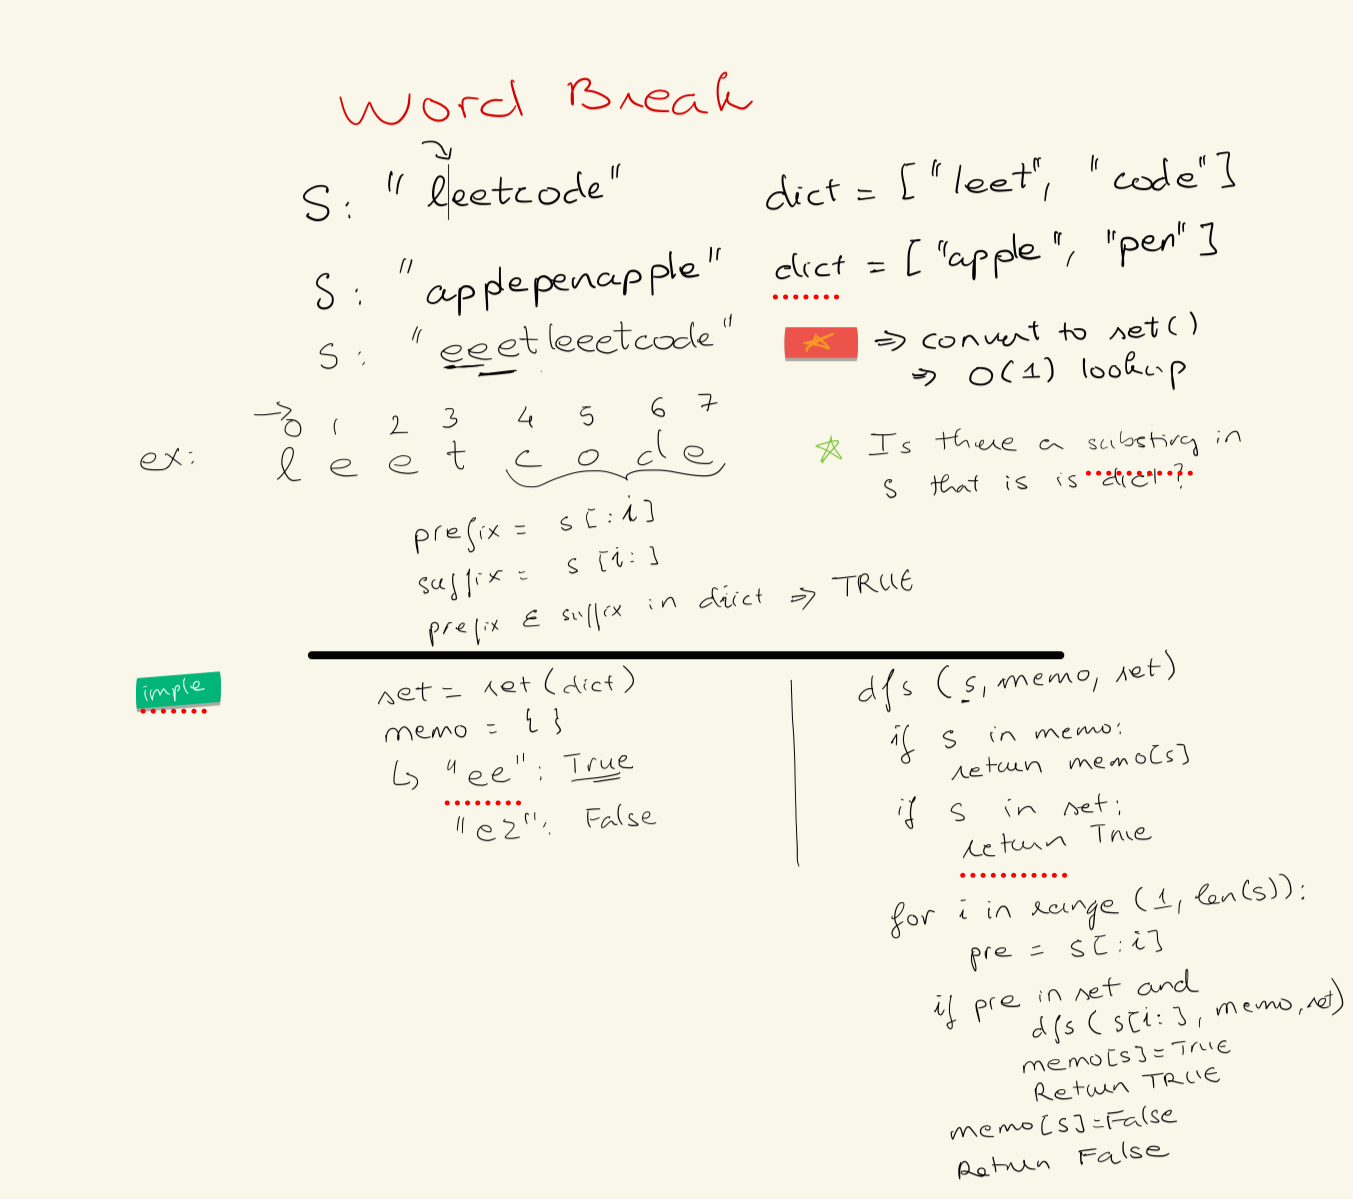 Word Break
S: "leetcode" dict = ["leet", "code"]
S: "applepenapple" dict = ["apple", "pen"]
S: "eeetleeetcode" ⇒ convert to set()
⇒ O(1) lookup
→ 0 1 2 3 4 5 6 7
ex: l e e t c o d e
☆ Is there a substirg in
S that is is dict?
prefix = s[:i]
suffix = s[i:]
prefix & suffix in diict ⇒ TRUE
imple
set = set(dict)
memo = { }
↳ "ee": True
"e2": False
dfs (s, memo, set)
if s in memo:
return memo[s]
if s in set:
return True
for i in range (1, len(s)):
pre = s[:i]
if pre in set and
dfs (s[i:], memo, set)
memo[s]=True
Return TRUE
memo[s]=False
Return False